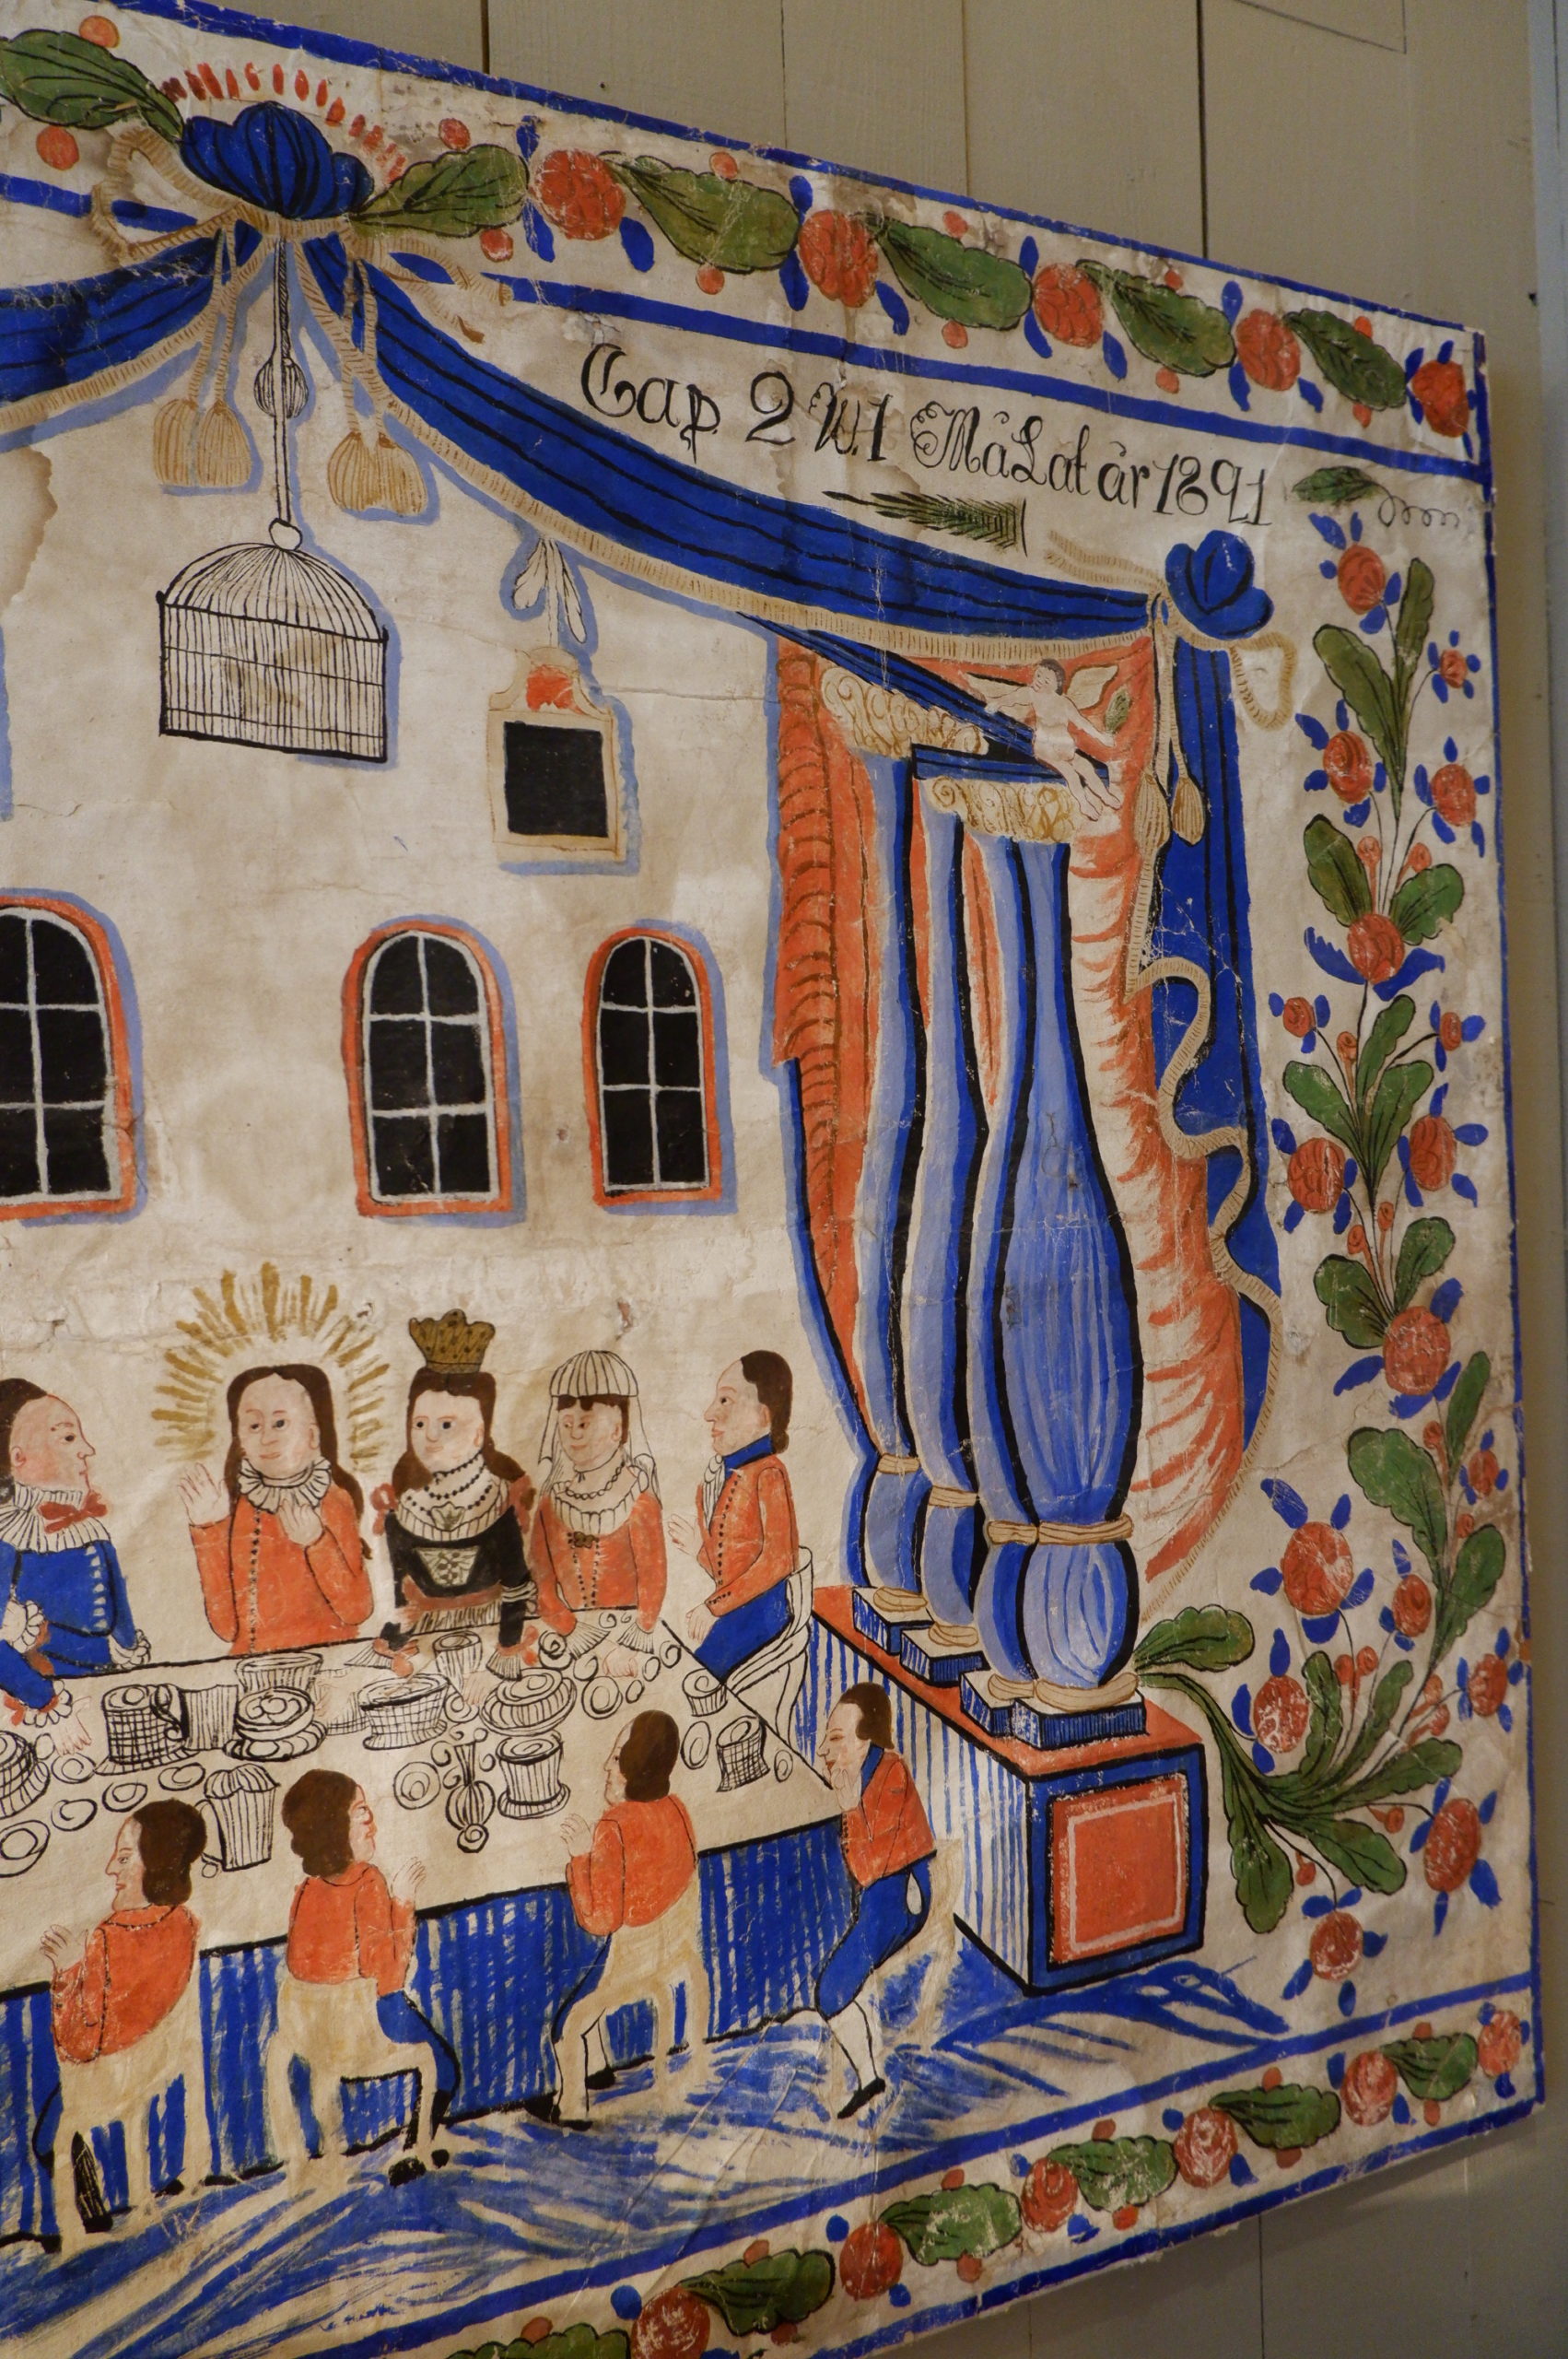 Cap. 2 W.1 MåLat år 1821